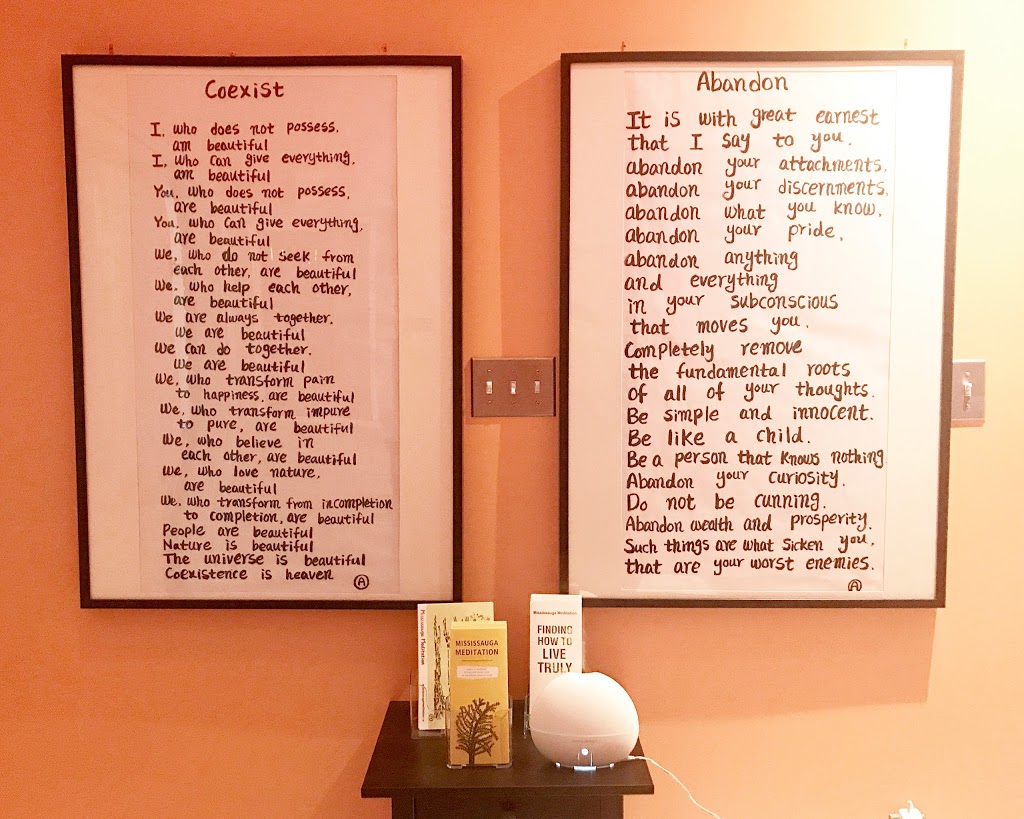 Coexist
I, who does not possess,
am beautiful
I, who can give everything,
am beautiful
You, who does not possess,
are beautiful
You, who can give everything,
are beautiful
We, who do not seek from
each other, are beautiful
We, who help each other,
are beautiful
We are always together.
We are beautiful
We can do together.
We are beautiful
We, who transform pain
to happiness, are beautiful
We, who transform impure
to pure, are beautiful
We, who believe in
each other, are beautiful
We, who love nature,
are beautiful
We, who transform from incompletion
to completion, are beautiful
People are beautiful
Nature is beautiful
The universe is beautiful
Coexistence is heaven
A
Abandon
It is with great earnest
that I say to you,
abandon your attachments,
abandon your discernments,
abandon what you know,
abandon your pride,
abandon anything
and everything
in your subconscious
that moves you.
Completely remove
the fundamental roots
of all of your thoughts.
Be simple and innocent.
Be like a child.
Be a person that knows nothing
Abandon your curiosity.
Do not be cunning.
Abandon wealth and prosperity.
Such things are what sicken you,
that are your worst enemies.
A
Mississauga Meditation
MISSISSAUGA
MEDITATION
Mississauga Meditation
FINDING
HOW TO
LIVE
TRULY